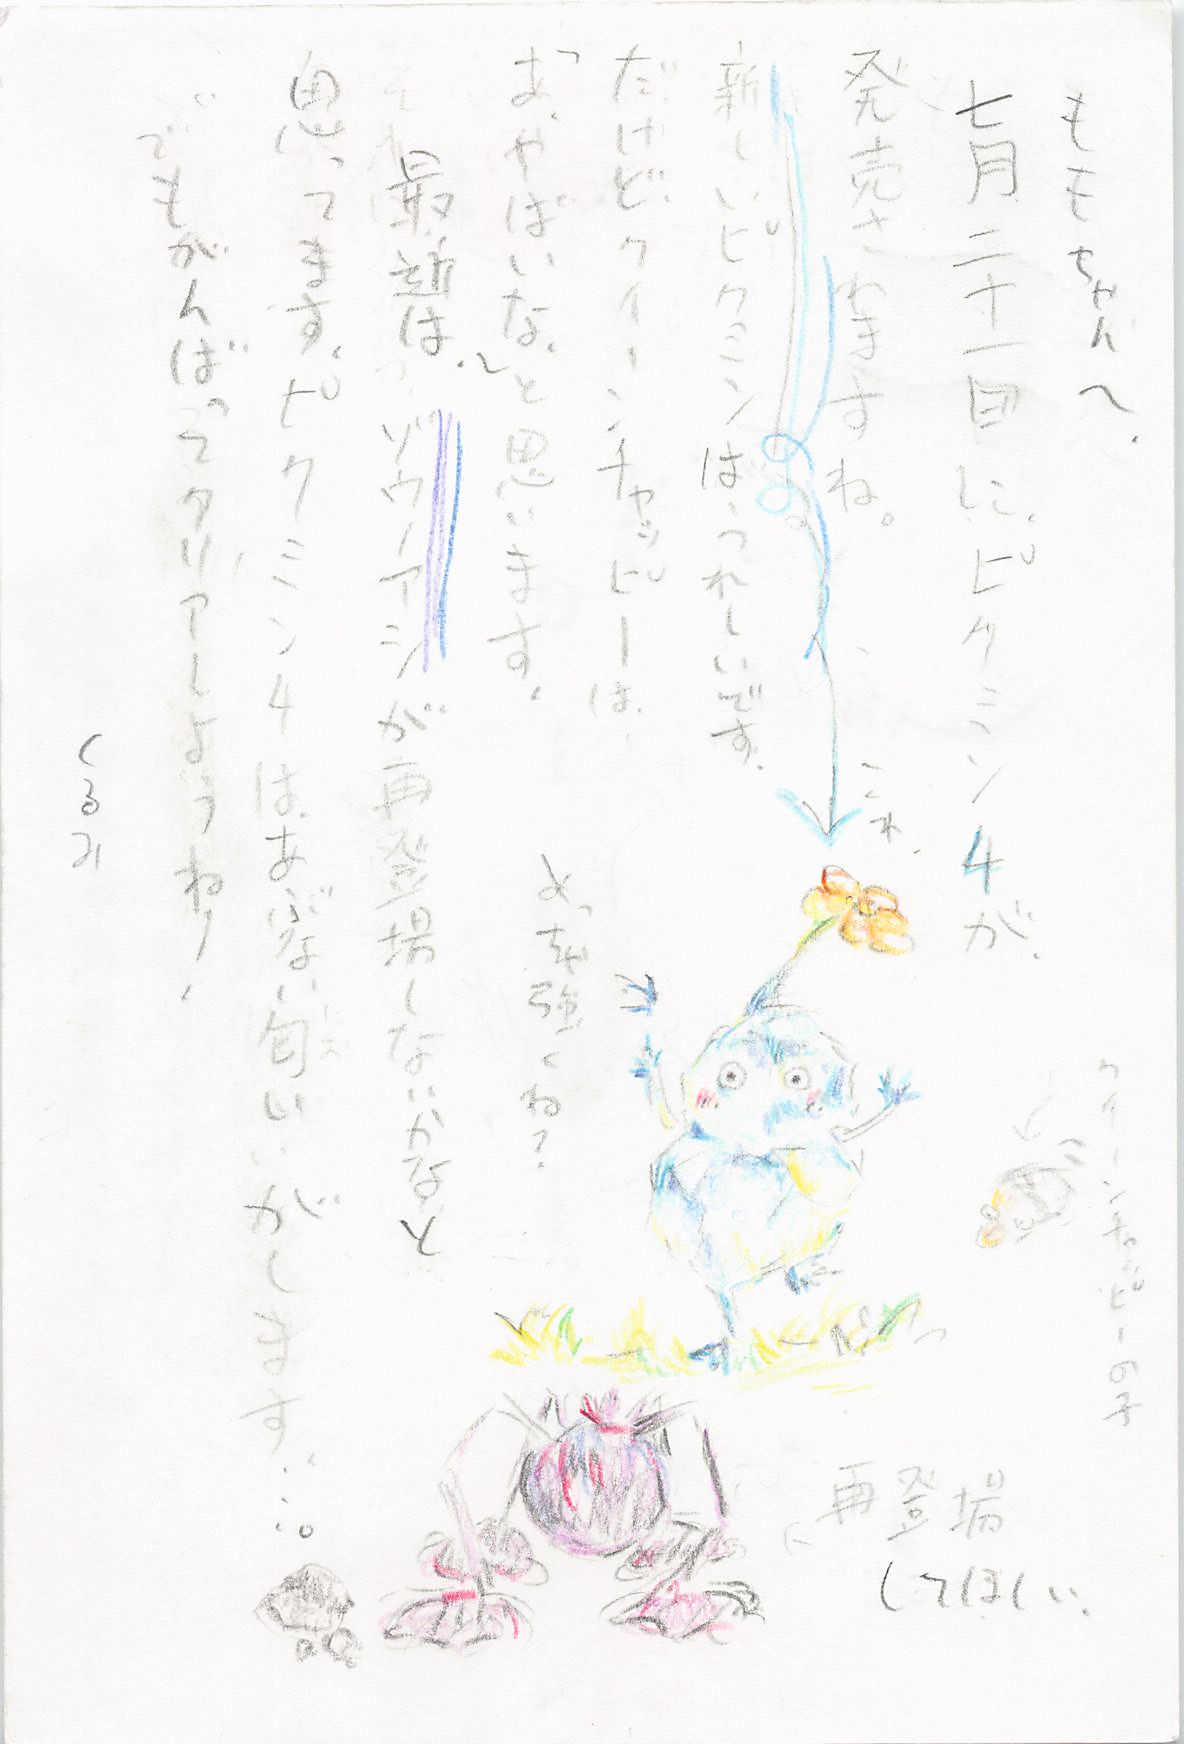 ももちゃんへ、
七月二十一日に、ピクミン4が、
発売されますね。
新しいピクミンはうれしいです、
だけど、クイーンチャッピーは、
「あ、やばいな、」と思います。
最近は、ゾウノアシが再登場しないかなと
思ってます、ピクミン4は、あぶない匂いがします…。
でもがんばってクリアしようね、
くるみ
これ、
めっちゃ強くね?
クイーンチャッピーの子
再登場
してほしい、